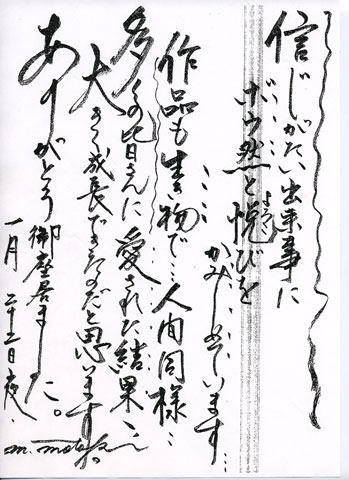 信じがたい出来事に
ボウ然と悦びを
よろこ
かみしめています…
作品も生き物で…人間同様…
多くの皆さんに愛された結果、
大きく成長できたのだと思います
ありがとう御座居ました。
一月二十二日夜.